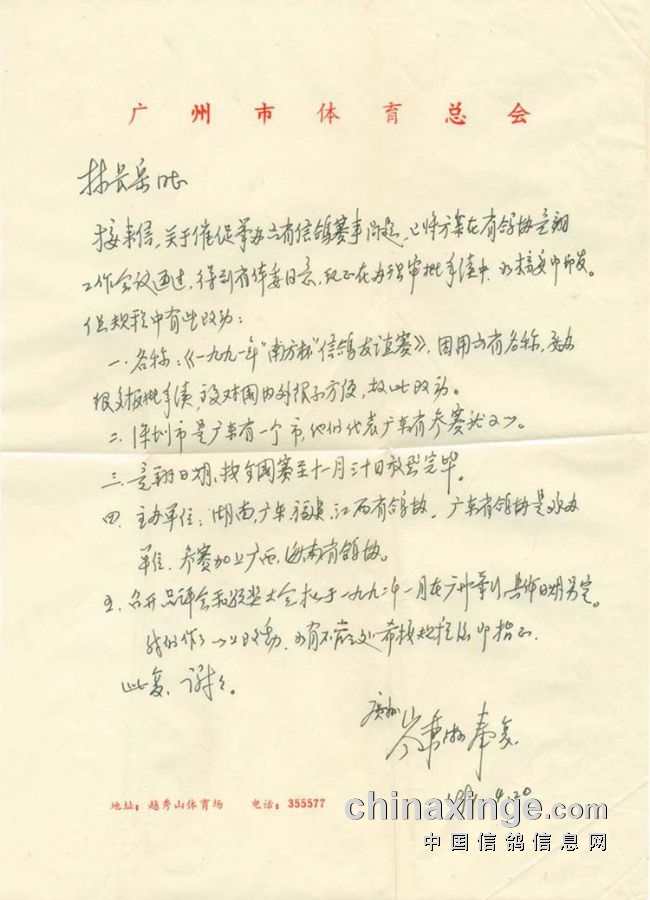 广州市体育总会
林长 同志
接来信,关于催促举办六省信鸽赛事问题,已将方案在省鸽协竞翔
工作会议通过,得到省体委同意,现正在办理审批手续中,
但规程中有些改动:
一.名称:《一九九一年"南方杯"信鸽友谊赛》,因用六省名称,
报批手续, 对国内外很不方便,故此改动。
二.深圳市是广东省一个市,他们代表广东省参赛
三.竞翔日期,按全国赛至十一月三十日放飞完毕。
四.主办单位:湖南,广东,福建,江西省鸽协。广东省鸽协是
单位.参赛加上广西,海南省鸽协。
五.召开品评会和颁奖大会拟于一九九二年一月在广州举行,具体日期另定。
我们作了以上改动,如有不 处希
此复.谢谢。
广州 岑 奉复
1991.4.20
地址:越秀山体育场 电话:355577
chinaxinge.com
中国信鸽信息网